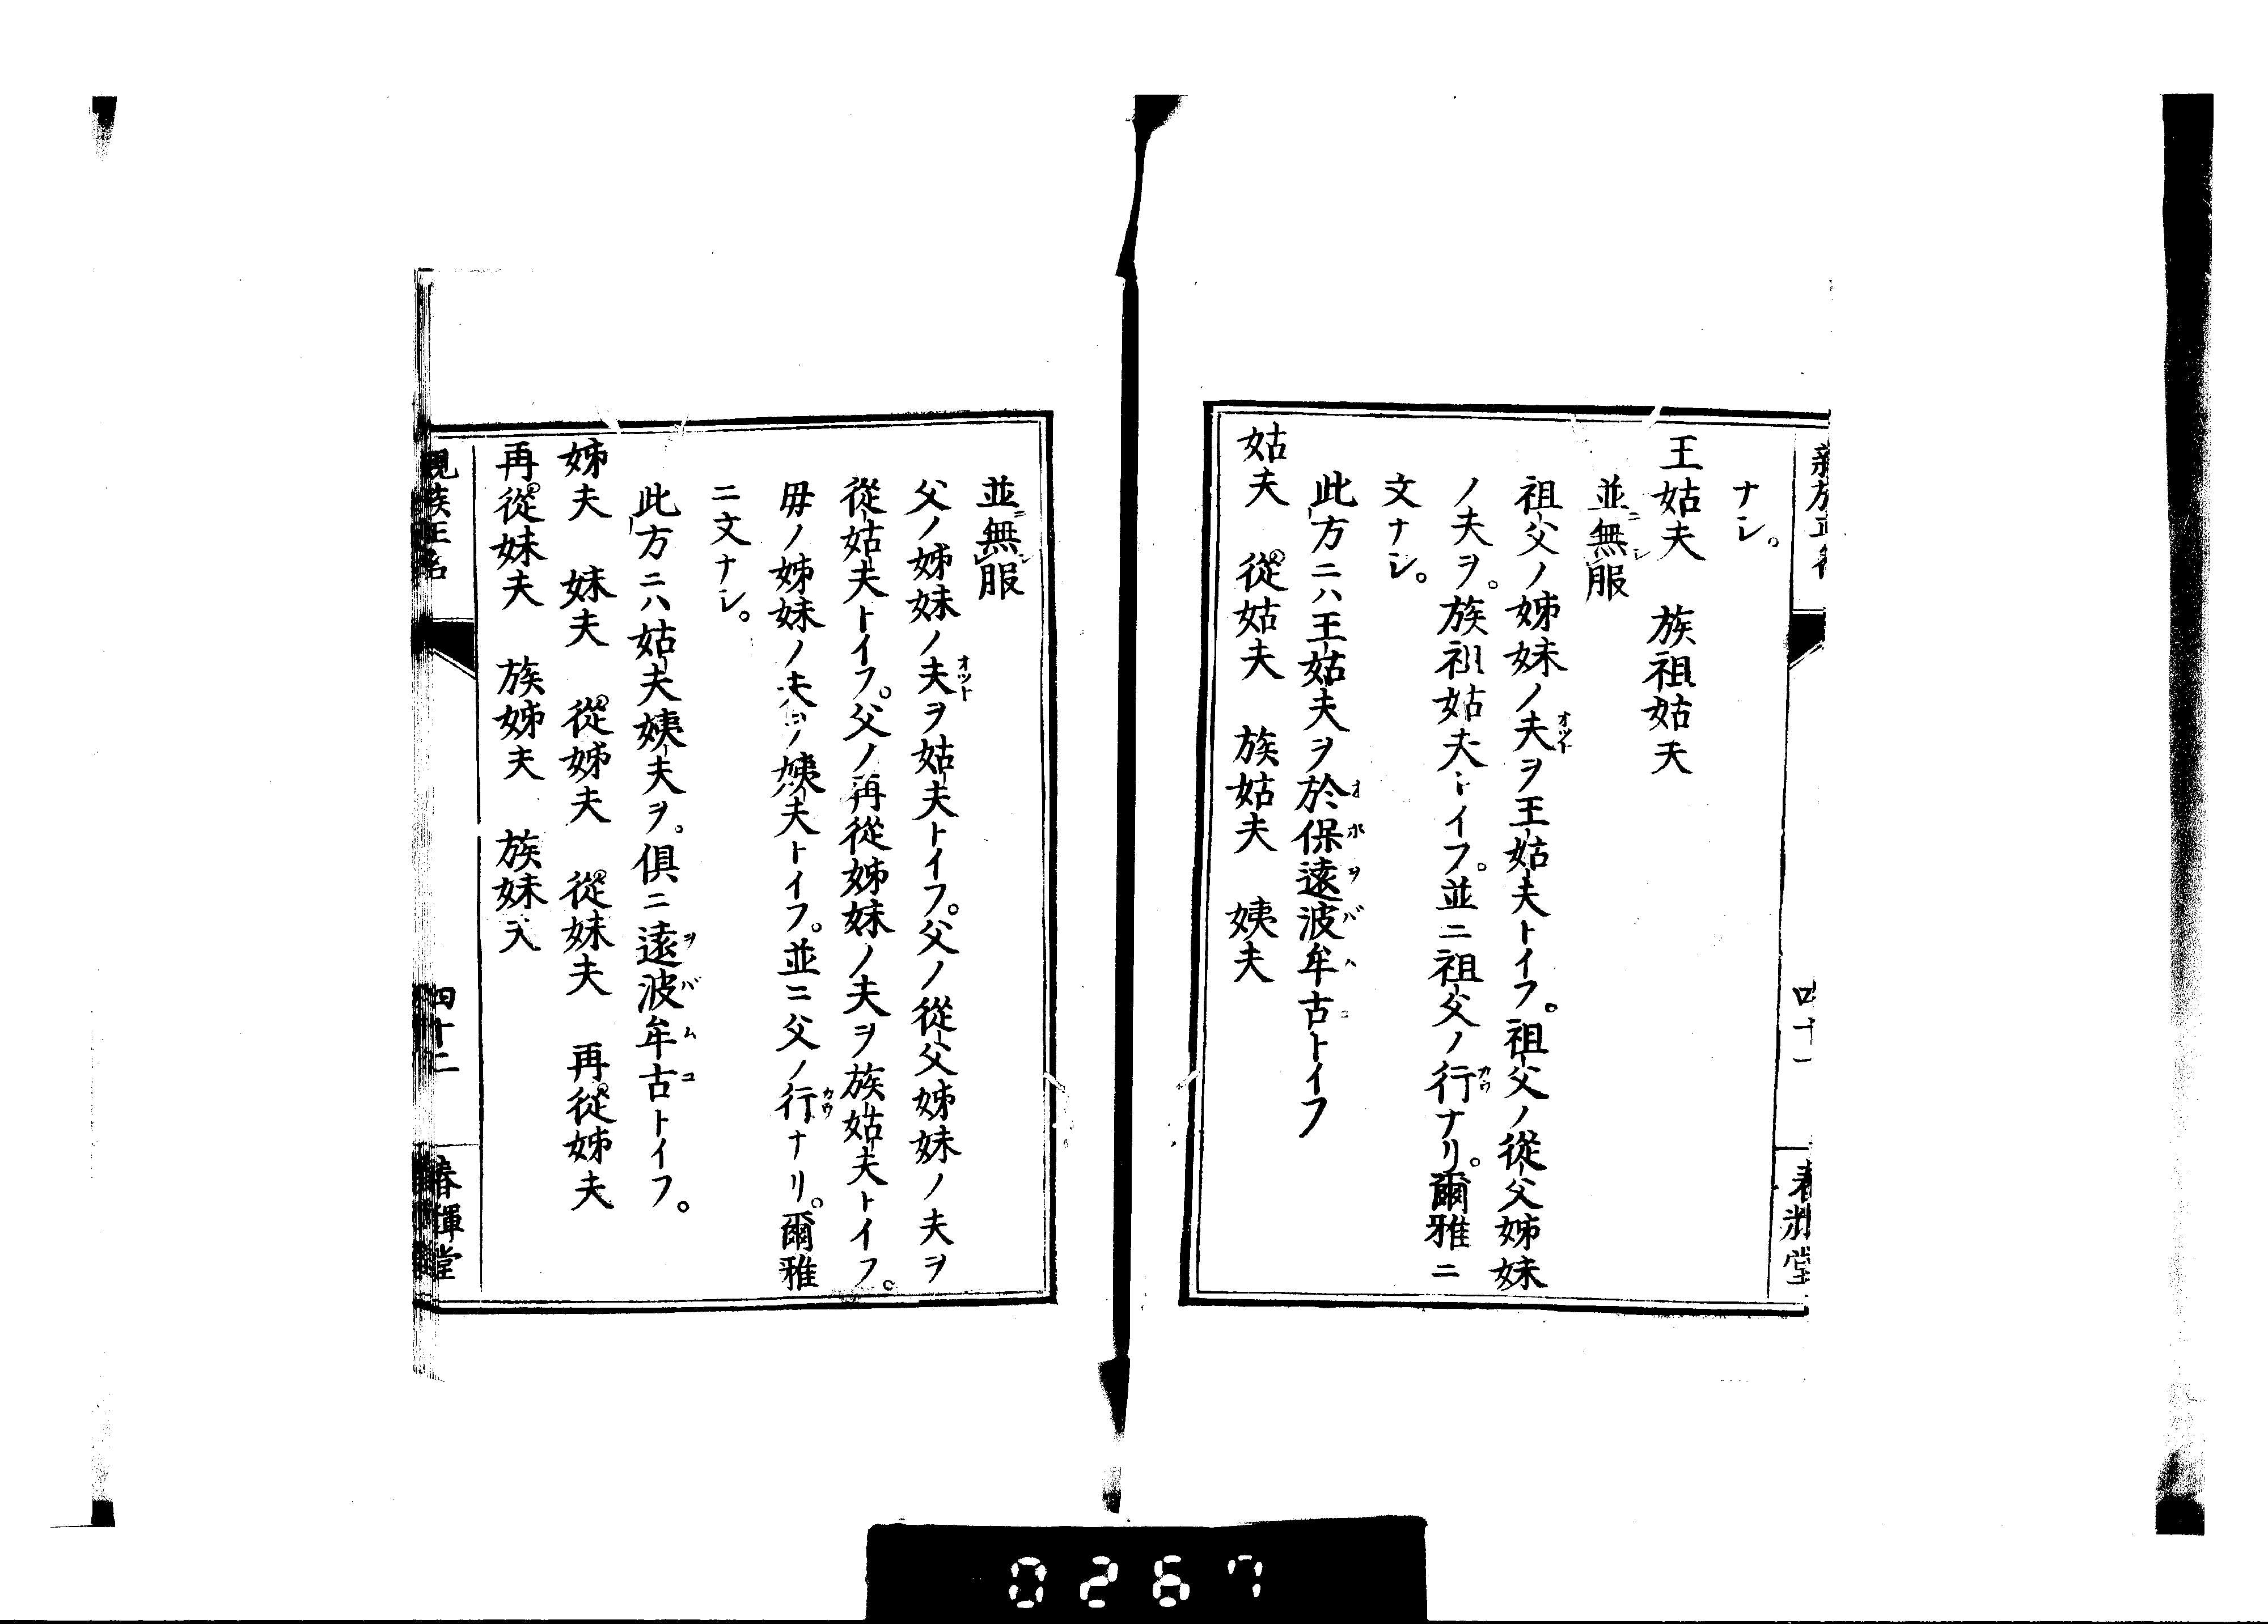 ナシ。
王姑夫　族祖姑夫
並ニ無レ服
祖父ノ姊妹ノ夫ヲ王姑夫トイフ。祖父ノ從父姊妹
ノ夫ヲ。族祖姑夫トイフ。並ニ祖父ノ行ナリ。爾雅ニ
文ナシ。
此方ニハ王姑夫ヲ於保遠波牟古トイフ
姑夫　從姑夫　族姑夫　姨夫
四十一
並ニ無レ服
父ノ姊妹ノ夫ヲ姑夫トイフ。父ノ從父姊妹ノ夫ヲ
從姑夫トイフ。父ノ再從姊妹ノ夫ヲ族姑夫トイフ。
毋ノ姊妹ノ夫ヲノ姨夫トイフ。並ニ父ノ行ナリ。爾雅
ニ文ナシ。
此方ニハ姑夫姨夫ヲ。俱ニ遠波牟古トイフ。
姊夫　妹夫　從姊夫　從妹夫　再從姊夫
再從妹夫　族姊夫　族妹夫
親族正名　四十二　春暉堂
0267